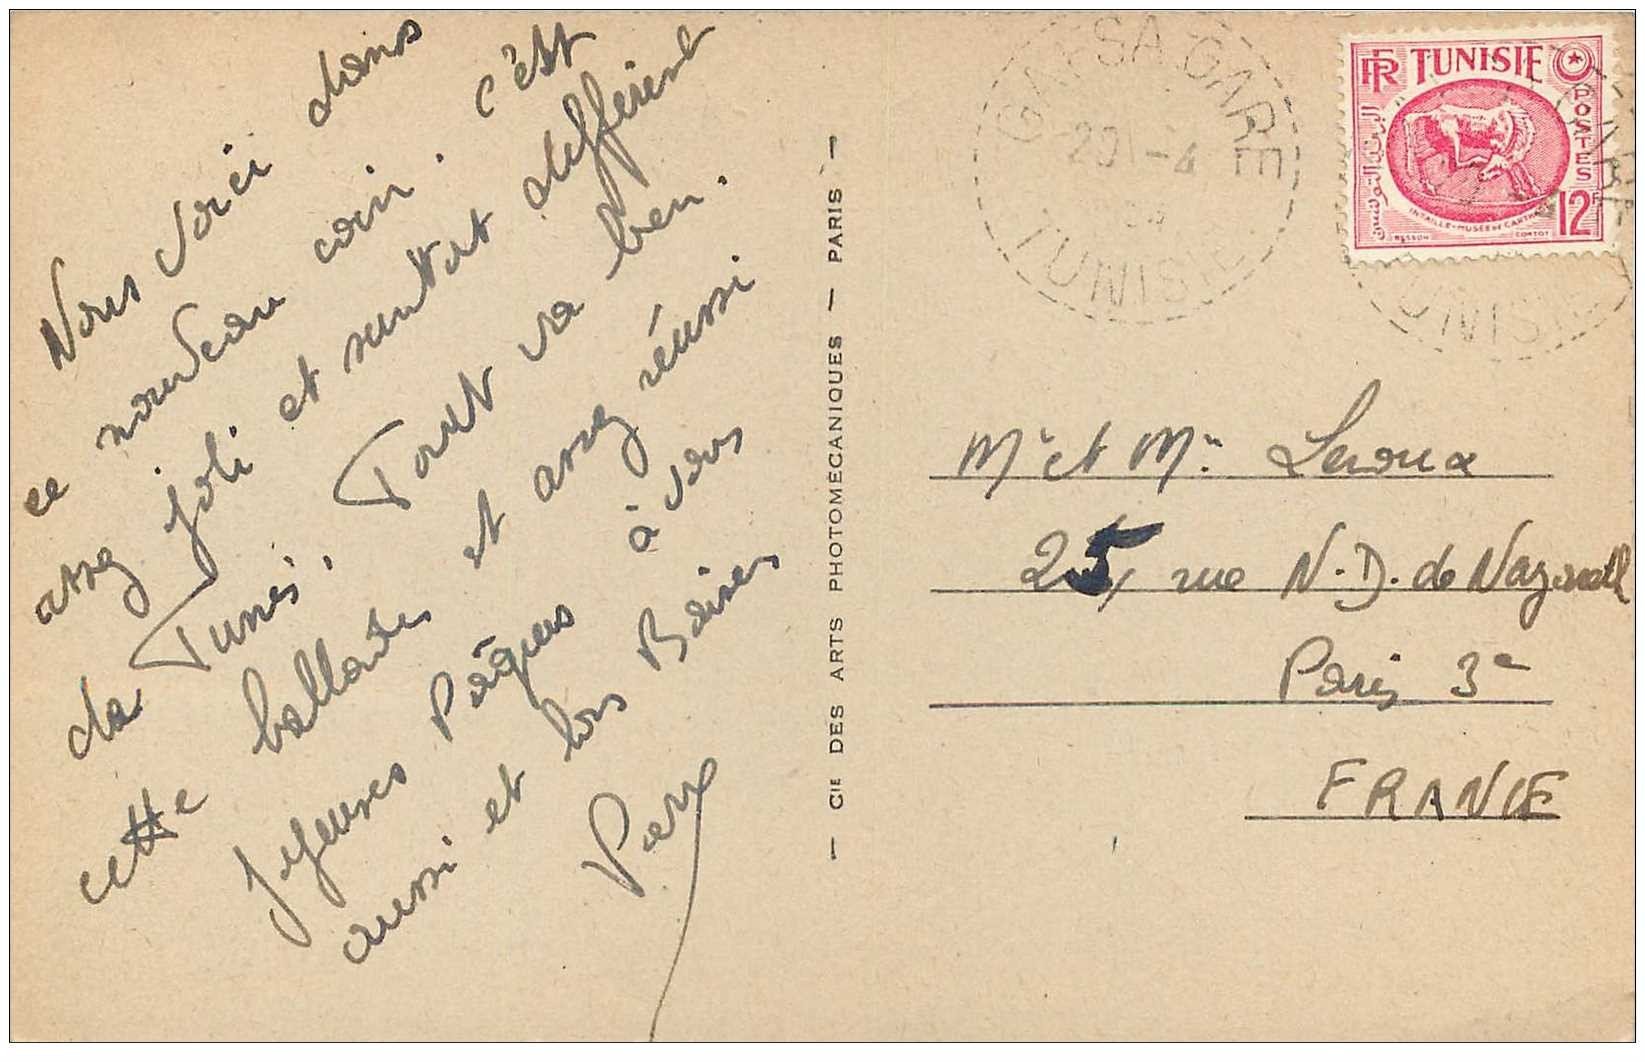 Nous voici dans
ce nouveau coin. c'est
assez joli et surtout différent
de Tunis. Tout va bien.
cette ballade et assez réussi
Joyeuses Pâques à vous
aussi et bons Baisers
— CIE DES ARTS PHOTOMECANIQUES — PARIS —
GAFSA GARE
TUNISIE
RF TUNISIE
POSTES
12F
البريد التونسية
INTAILLE-MUSÉE DE CARTHAGE
CORTOT
GARE
TUNISIE
Mr et Me Leroux
25, rue N.D. de Nazareth
Paris 3e
FRANCE